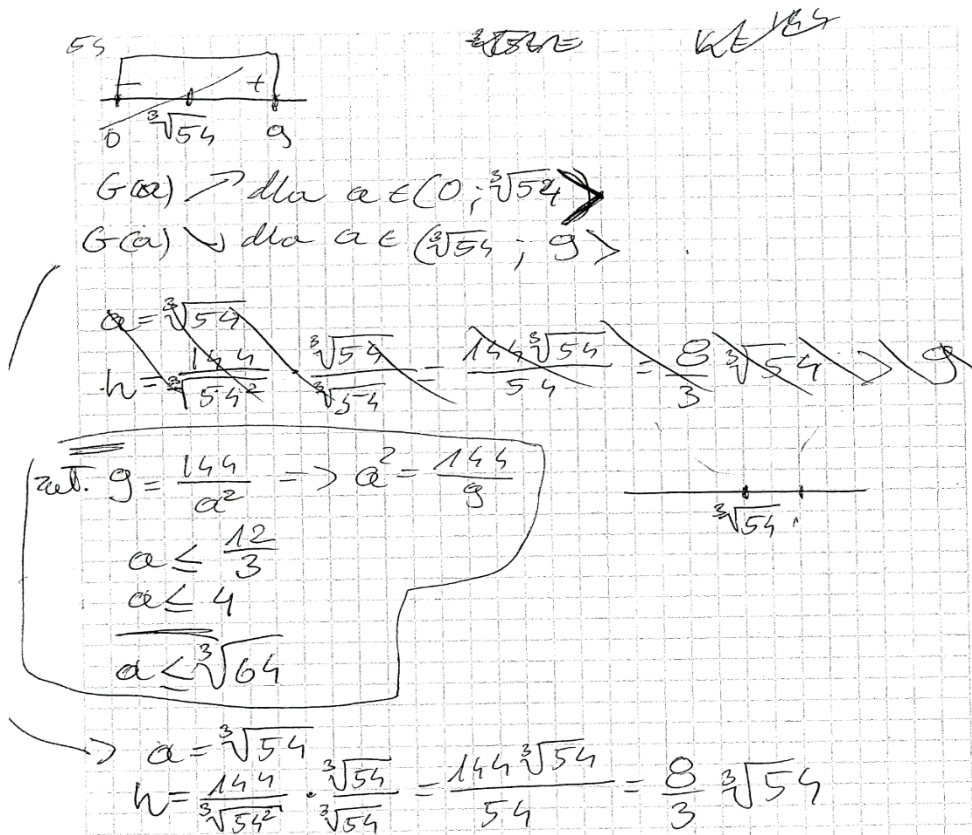 54
- +
0 ∛54 9
G(a) ↗ dla a ∈ (0; ∛54>
G(a) ↘ dla a ∈ (∛54; 9>
a = ∛54
h = 144/∛54² · ∛54/∛54 = 144∛54/54 = 8/3 ∛54 > 9
zał. 9 = 144/a² -> a² = 144/9
a ≤ 12/3
a ≤ 4
a ≤ ∛64
∛54
-> a = ∛54
h = 144/∛54² · ∛54/∛54 = 144∛54/54 = 8/3 ∛54